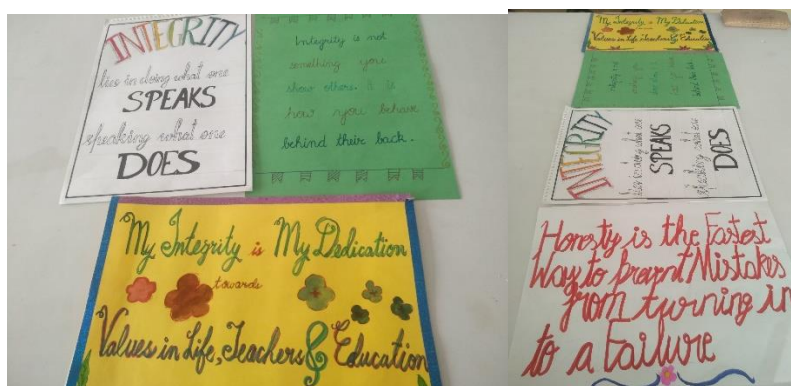 INTEGRITY
lies in doing what one
SPEAKS
speaking what one
DOES
Integrity is not
something you
show others. it is
how you behave
behind their back.
My Integrity is My Dedication
towards
Values in Life, Teachers & Education
My Integrity is My Dedication
Values in Life, Teachers & Education
INTEGRITY
lies in doing what one
SPEAKS
speaking what one
DOES
Honesty is the Fastest
Way to prevent Mistakes
from turning in
to a Failure